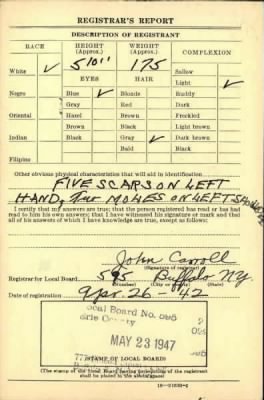 REGISTRAR'S REPORT
DESCRIPTION OF REGISTRANT
RACE HEIGHT (Approx.) WEIGHT (Approx.) COMPLEXION
5 10" 175
White ✓ EYES HAIR Sallow
Light ✓
Negro Blue ✓ Blonde Ruddy
Gray Red Dark
Oriental Hazel Brown Freckled
Brown Black Light brown
Indian Black Gray ✓ Dark brown
Bald Black
Filipino
Other obvious physical characteristics that will aid in identification
FIVE SCARS ON LEFT
HAND, Two MOLES ON LEFT
I certify that my answers are true; that the person registered has read or has had
read to him his own answers; that I have witnessed his signature or mark and that
all of his answers of which I have knowledge are true, except as follows:
John Carroll
(Signature of registrar)
Registrar for Local Board 595 Buffalo NY
(Number) (City or county) (State)
Date of registration Apr. 26 - 42
ocal Board No. 595
County
MAY 23 1947
(STAMP OF LOCAL BOARD)
(The stamp of the Local Board having jurisdiction of the registrant
shall be placed in the above space)